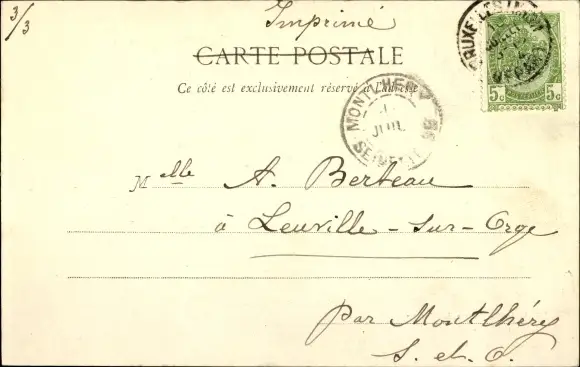 3/3
Imprimé
CARTE POSTALE
Ce côté est exclusivement réservé à l'adresse
BRUXELLES
5c 5c
MONTLHERY
JUIL
SEINE
Melle A. Berteau
à Leuville-sur-Orge
Par Montlhéry
S. et O.